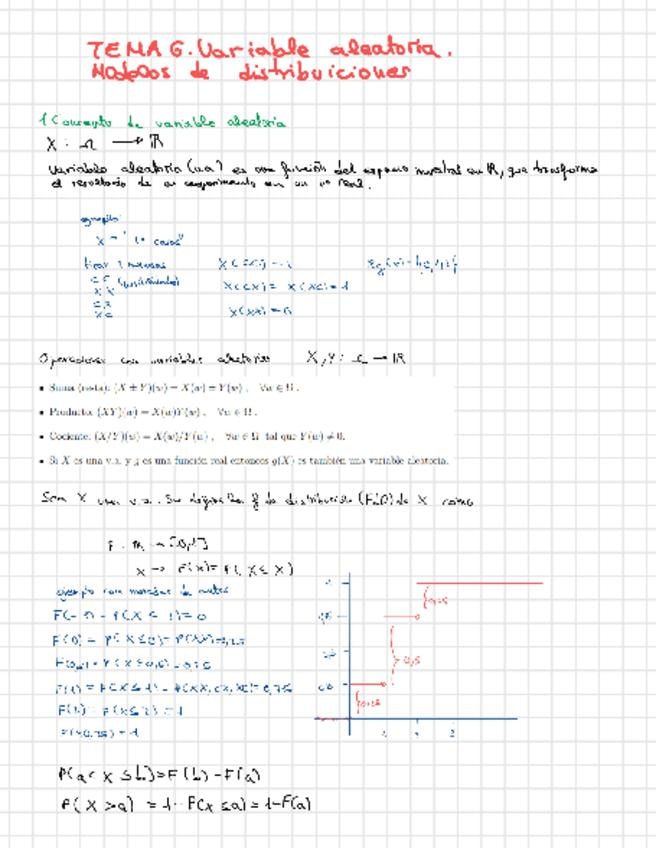 TEMA 6. Variable aleatoria.
Modelos de distribuiciones
1 Concepto de variable aleatoria
X : Ω → ℝ
Variable aleatoria (v.a.) es una función del espacio muestral en ℝ, que transforma
el resultado de un experimento en un nº real.
ejemplo
X = "nº caras"
tirar 2 monedas
X(CX) = X(XC) = 1
X(XX) = 0
Operaciones con variables aleatorias X, Y : Ω → ℝ
• Suma (resta): (X ± Y)(w) = X(w) ± Y(w) , ∀w ∈ Ω .
• Producto: (XY)(w) = X(w)Y(w) , ∀w ∈ Ω .
• Cociente: (X/Y)(w) = X(w)/Y(w) , ∀w ∈ Ω tal que Y(w) ≠ 0.
• Si X es una v.a. y g es una función real entonces g(X) es también una variable aleatoria.
Sea X una v.a. Se define la f de distribución (F.D) de X como
F : ℝ → [0,1]
x → F(x) = P(X ≤ x)
ejemplo con monedas de antes
F(-1) = P(X ≤ -1) = 0
F(0) = P(X ≤ 0) = P(XX) = 0,25
F(1) = P(X ≤ 1) = P(XX, CX, XC) = 0,75
F(2) = P(X ≤ 2) = 1
0,5
P(a < X ≤ b) = F(b) - F(a)
P(X > a) = 1 - P(X ≤ a) = 1 - F(a)